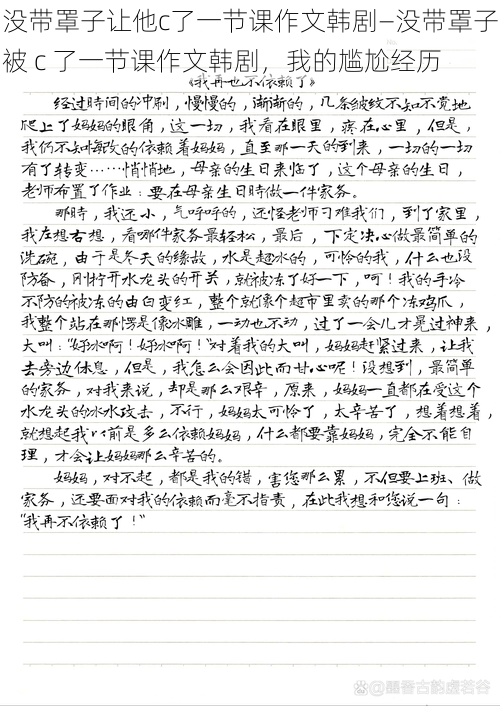 没带罩子让他c了一节课作文韩剧—没带罩子
被 c 了一节课作文韩剧，我的尴尬经历
《我再也不依赖了》
经过时间的冲刷，慢慢的，渐渐的，几条皱纹不知不觉地
爬上了妈妈的眼角，这一切，我看在眼里，疼在心里，但是，
我仍不知悔改的依赖着妈妈，直至那一天的到来，一切的一切
有了转变……悄悄地，母亲的生日来临了，这个母亲的生日，
老师布置了作业：要在母亲生日时做一件家务。
那时，我还小，气呼呼的，还怪老师刁难我们，到了家里，
我左想右想，看哪件家务最轻松，最后，下定决心做最简单的
洗碗，由于是冬天的缘故，水是超冰的，可怜的我，什么也没
防备，刚拧开水龙头的开关，就被冻了好一下，呵！我的手冷
不防的被冻的由白变红，整个就像个超市里卖的那个冻鸡爪，
我整个站在那愣是像冰雕，一动也不动，过了一会儿才晃过神来，
大叫："好冰啊！好冰啊！"对着我的大叫，妈妈赶紧过来，让我
去旁边休息，但是，我怎么会因此而甘心呢！没想到，最简单
的家务，对我来说，却是那么艰辛，原来，妈妈一直都在受这个
水龙头的冰水攻击，不行，妈妈太可怜了，太辛苦了，想着想着，
就想起我以前是多么依赖妈妈，什么都要靠妈妈，完全不能自
理，才会让妈妈那么辛苦的。
妈妈，对不起，都是我的错，害您那么累，不但要上班、做
家务，还要面对我的依赖而毫不指责，在此我想和您说一句：
"我再不依赖了！"